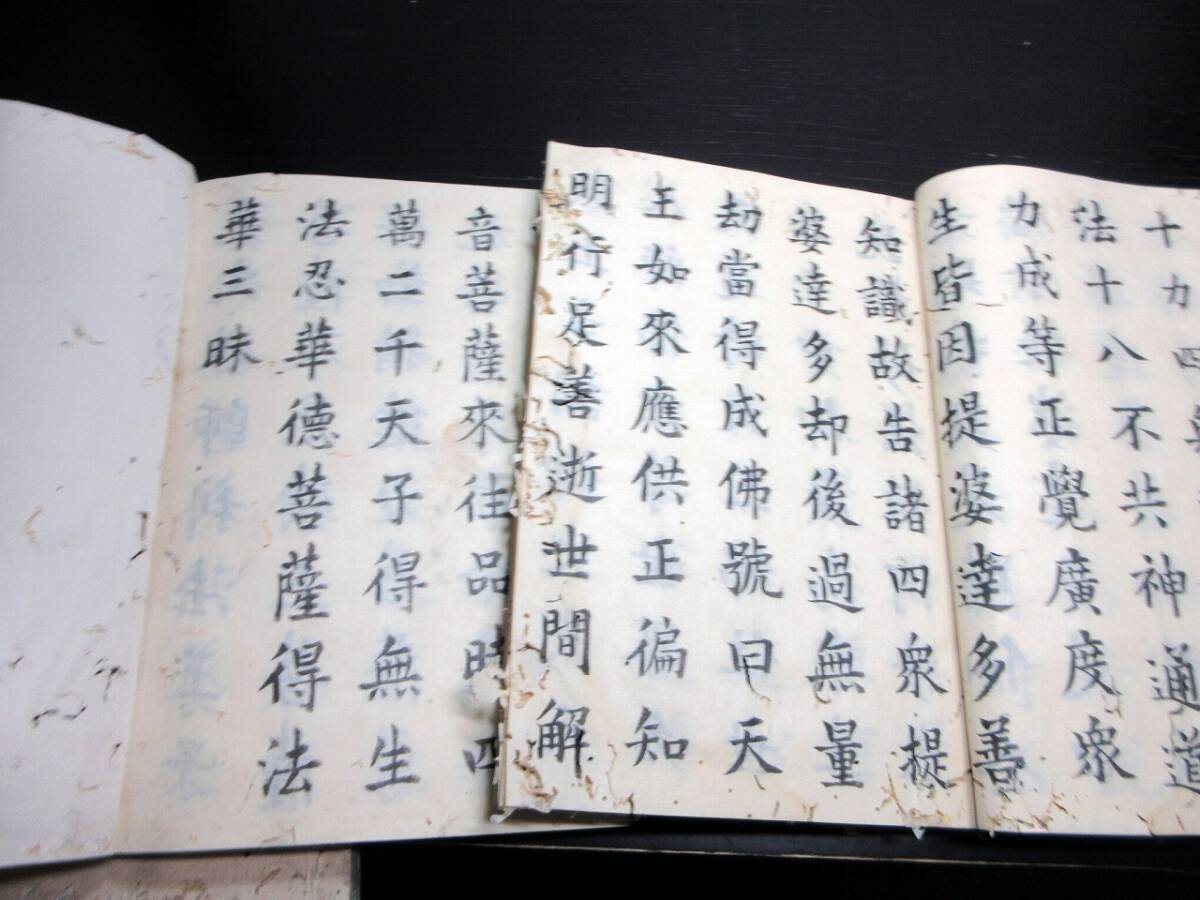 十力四
法十八不共神通道
力成等正覺廣度衆
生皆因提婆達多善
知識故告諸四衆提
婆達多却後過無量
劫當得成佛號曰天
王如來應供正徧知
明行足善逝世間解
音菩薩來往品時四
萬二千天子得無生
法忍華德菩薩得法
華三昧